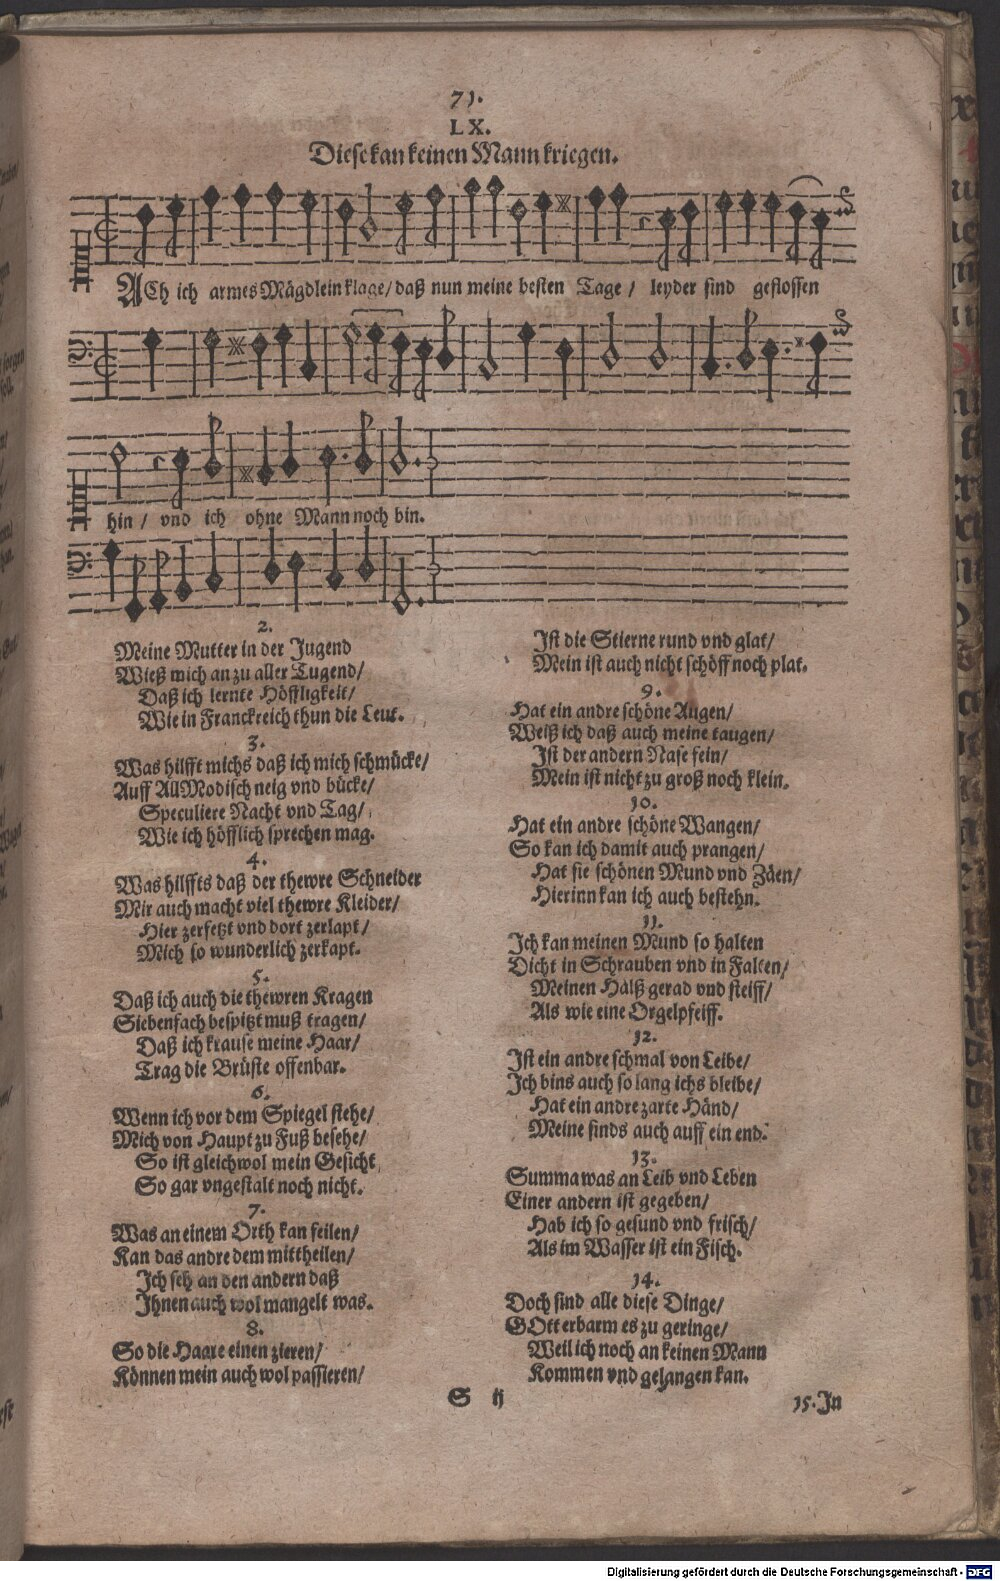 71.
LX.
Diese kan keinen Mann kriegen.
ACh ich armes Mägdlein klage/ daß nun meine besten Tage/ leyder sind gestossen
hin/ vnd ich ohne Mann noch bin.
2.
Meine Mutter in der Jugend
Wieß mich an zu aller Tugend/
Daß ich lernte Höffligkeit/
Wie in Franckreich thun die Leut.
3.
Was hilfft michs daß ich mich schmücke/
Auff AllModisch neig vnd bücke/
Speculiere Nacht vnd Tag/
Wie ich höfflich sprechen mag.
4.
Was hilffts daß der thewre Schneider
Mir auch macht viel thewre Kleider/
Hier zersetzt vnd dort zerlapt/
Mich so wunderlich zerkapt.
5.
Daß ich auch die thewren Kragen
Siebenfach bespitzt muß tragen/
Daß ich krause meine Haar/
Trag die Brüste offenbar.
6.
Wenn ich vor dem Spiegel stehe/
Mich von Haupt zu Fuß besehe/
So ist gleichwol mein Gesicht
So gar vngestalt noch nicht.
7.
Was an einem Orth kan feilen/
Kan das andre dem mittheilen/
Ich seh an den andern daß
Ihnen auch wol mangelt was.
8.
So die Haare einen zieren/
Können mein auch wol passieren/
Ist die Stierne rund vnd glat/
Mein ist auch nicht schöff noch plat.
9.
Hat ein andre schöne Augen/
Weiß ich daß auch meine taugen/
Ist der andern Nase fein/
Mein ist nicht zu groß noch klein.
10.
Hat ein andre schöne Wangen/
So kan ich damit auch prangen/
Hat sie schönen Mund vnd Zäen/
Hierinn kan ich auch bestehn.
11.
Ich kan meinen Mund so halten
Dicht in Schrauben vnd in Falten/
Meinen Halß gerad vnd steiff/
Als wie eine Orgelpfeiff.
12.
Ist ein andre schmal von Leibe/
Ich bins auch so lang ichs bleibe/
Hat ein andre zarte Händ/
Meine sinds auch auff ein end.
13.
Summa was an Leib vnd Leben
Einer andern ist gegeben/
Hab ich so gesund vnd frisch/
Als im Wasser ist ein Fisch.
14.
Doch sind alle diese Dinge/
GOtt erbarm es zu geringe/
Weil ich noch an keinen Mann
Kommen vnd gelangen kan.
S ij
15. In
Digitalisierung gefördert durch die Deutsche Forschungsgemeinschaft - DFG